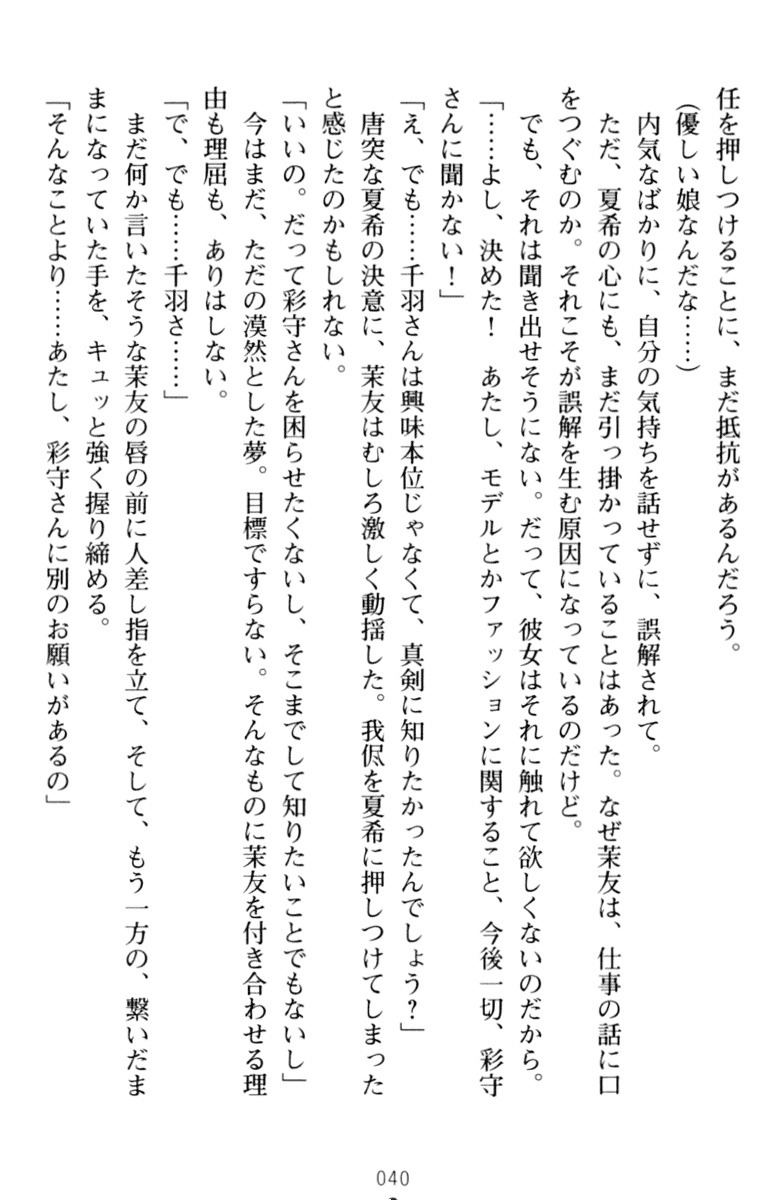 任を押しつけることに、まだ抵抗があるんだろう。
(優しい娘なんだな……)
　内気なばかりに、自分の気持ちを話せずに、誤解されて。
　ただ、夏希の心にも、まだ引っ掛かっていることはあった。なぜ茉友は、仕事の話に口
をつぐむのか。それこそが誤解を生む原因になっているのだけど。
　でも、それは聞き出せそうにない。だって、彼女はそれに触れて欲しくないのだから。
「……よし、決めた！　あたし、モデルとかファッションに関すること、今後一切、彩守
さんに聞かない！」
「え、でも……千羽さんは興味本位じゃなくて、真剣に知りたかったんでしょう？」
　唐突な夏希の決意に、茉友はむしろ激しく動揺した。我侭を夏希に押しつけてしまった
と感じたのかもしれない。
「いいの。だって彩守さんを困らせたくないし、そこまでして知りたいことでもないし」
　今はまだ、ただの漠然とした夢。目標ですらない。そんなものに茉友を付き合わせる理
由も理屈も、ありはしない。
「で、でも……千羽さ……」
　まだ何か言いたそうな茉友の唇の前に人差し指を立て、そして、もう一方の、繋いだま
まになっていた手を、キュッと強く握り締める。
「そんなことより……あたし、彩守さんに別のお願いがあるの」
040